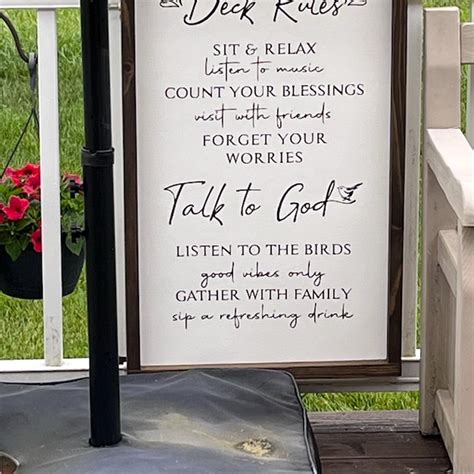 Deck Rules
SIT & RELAX
listen to music
COUNT YOUR BLESSINGS
visit with friends
FORGET YOUR
WORRIES
Talk to God
LISTEN TO THE BIRDS
good vibes only
GATHER WITH FAMILY
sip a refreshing drink